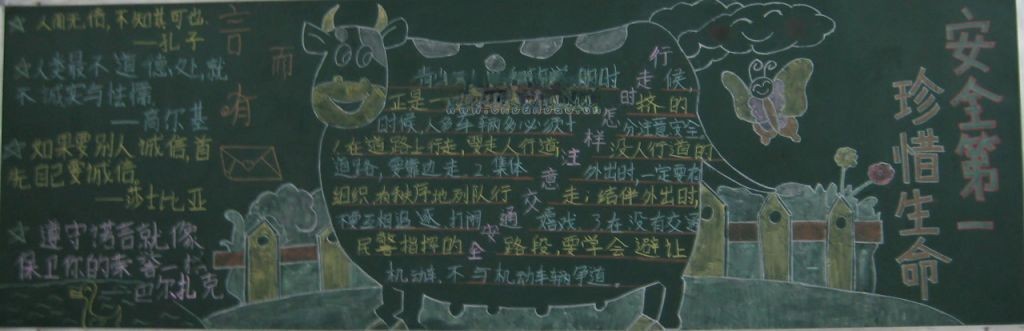 人而无信,不知其可也.
—孔子
人类最不道德处,就
不诚实与怯懦
—高尔基
如果要别人诚信,首
先自己要诚信
—莎士比亚
遵守诺言就像
保卫你的荣誉一样
巴尔扎克
言而有信
行走时怎样注意交通安全
时候
正是一 挤的
时候,人多车辆多必须十分注意安全
1在道路上行走,要走人行道,没人行道的
道路,要靠边走.2集体外出时,一定要有
组织、有秩序地列队行走;结伴外出时,
不要互相追逐、打闹、嬉戏 3在没有交通
民警指挥的路段,要学会避让
机动车,不与机动车辆争道.
安全第一
珍惜生命